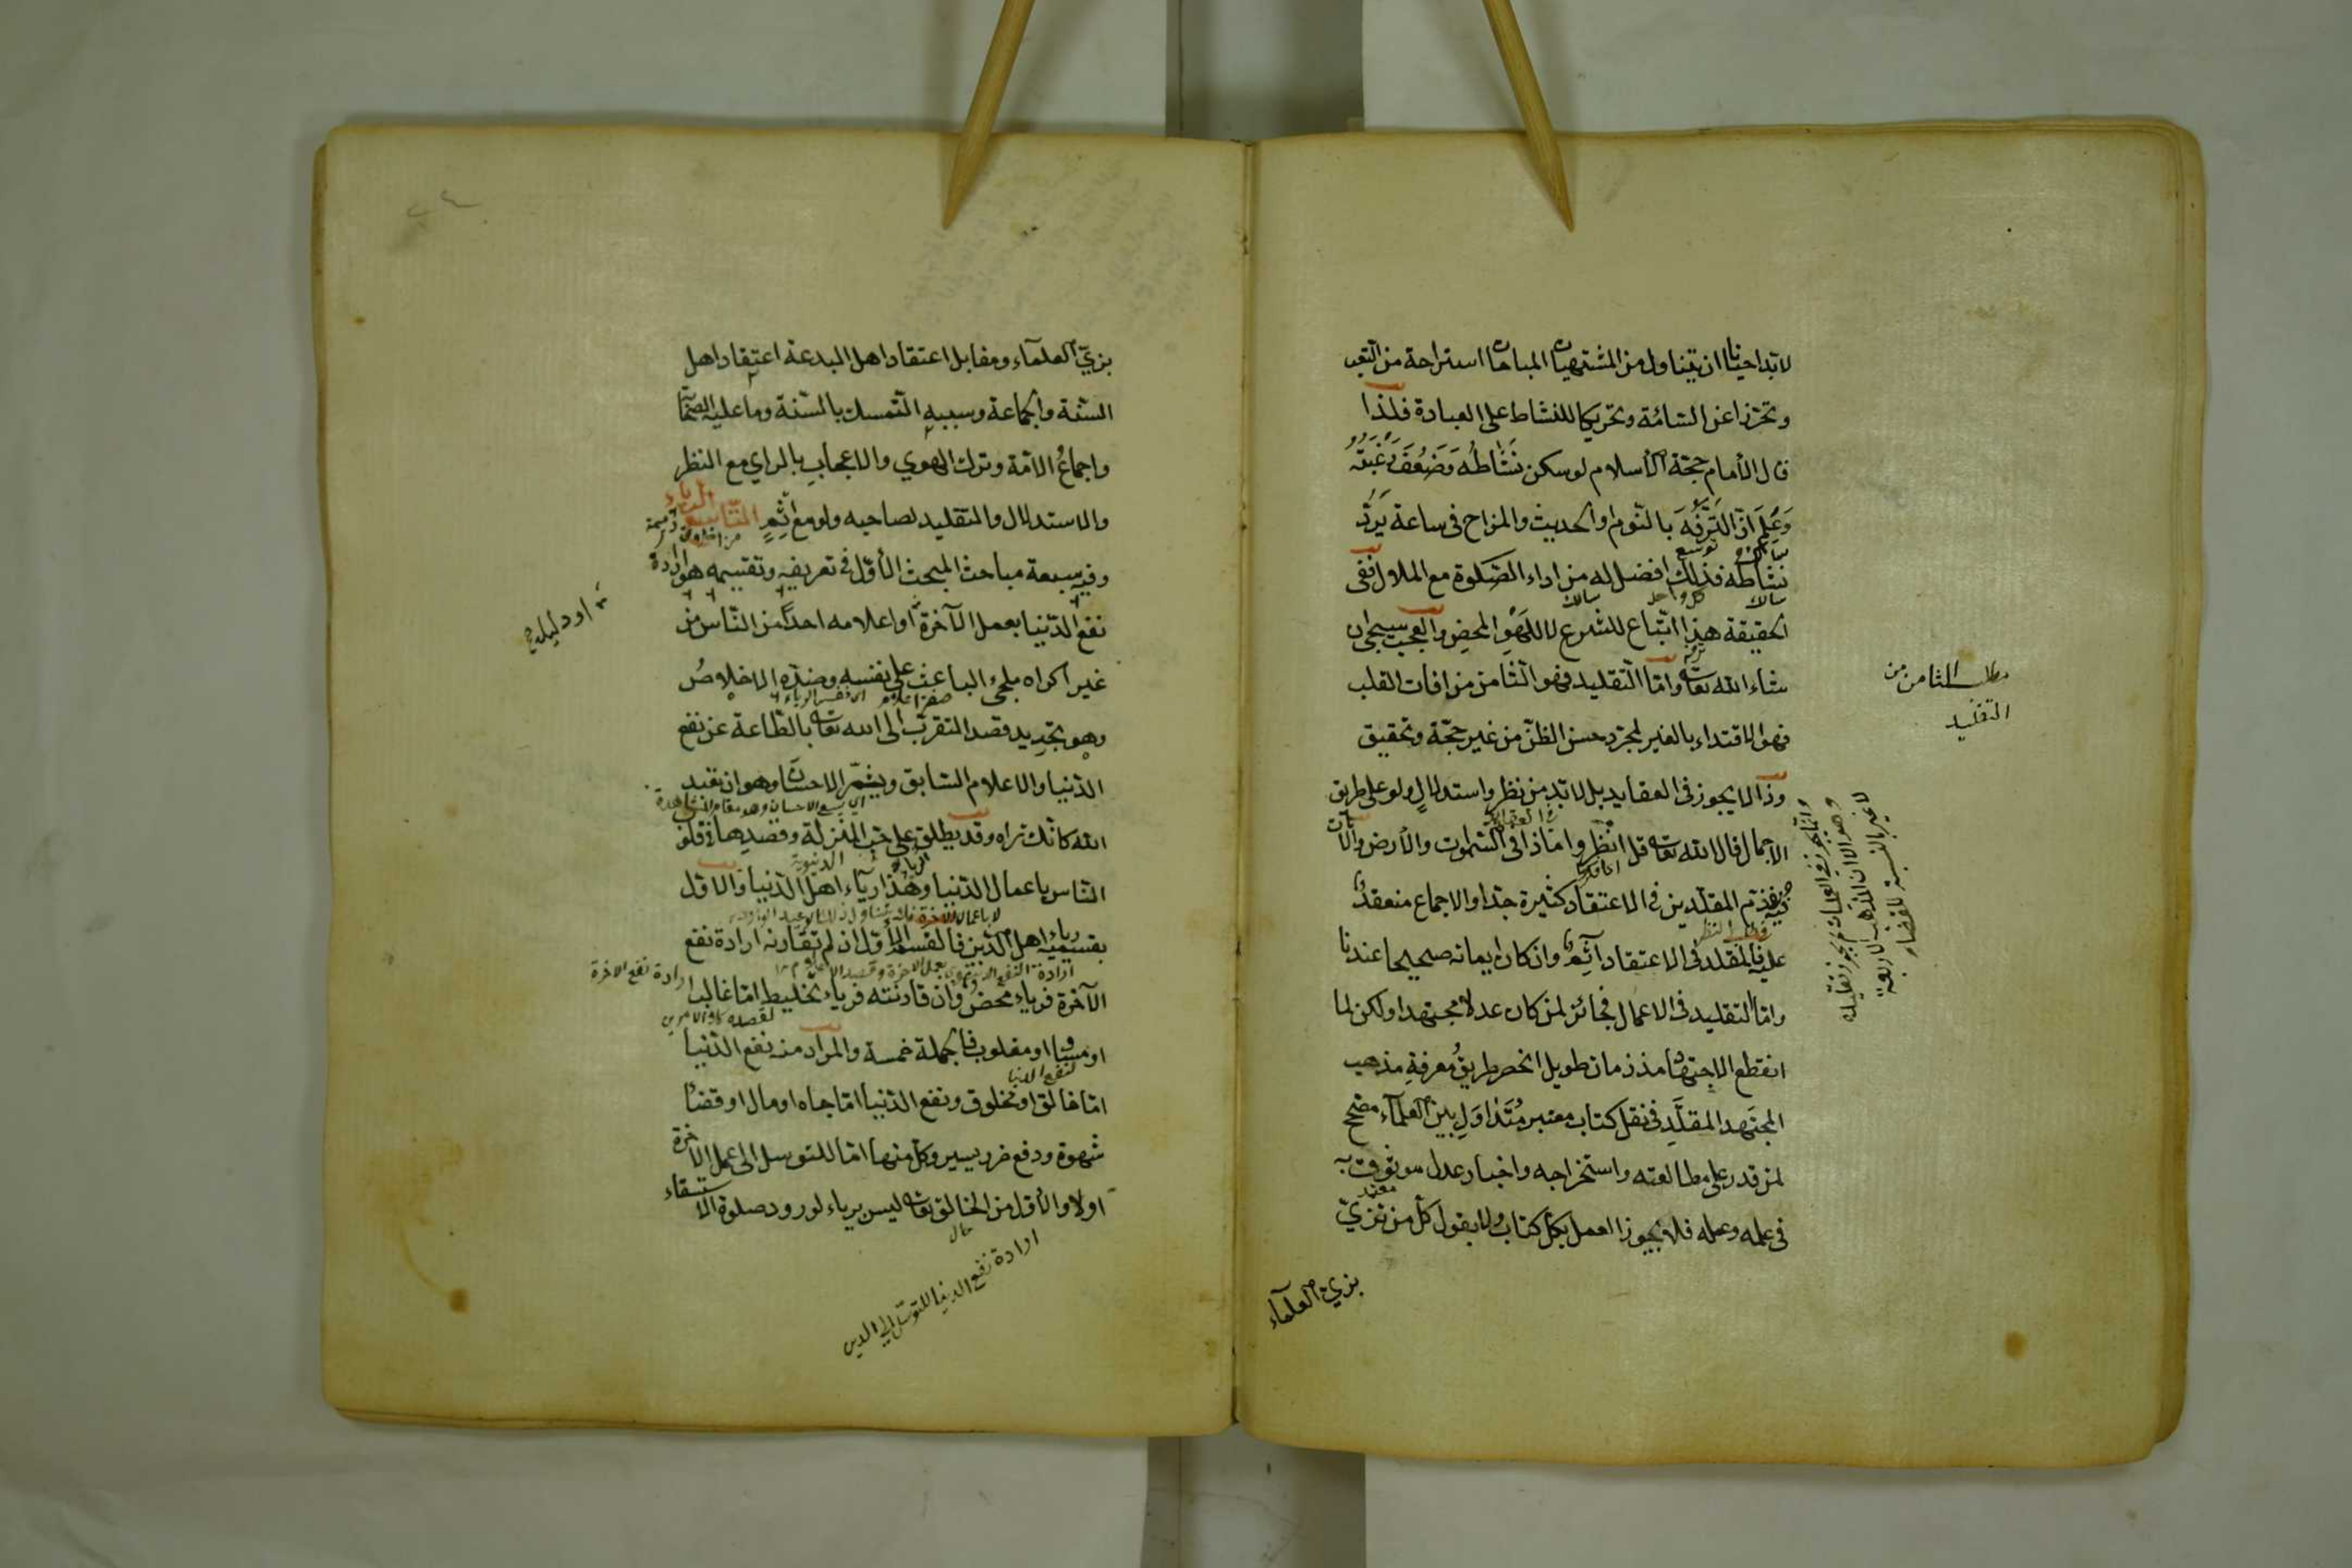 لابد احيانا ان يتناول من المشتهيات المباحات استراحة من التعب
وتحرزا عن السآمة وتحريكا للنشاط على العبادة فلذا
قال الأمام حجة الأسلام لو سكن نَشَاطُه وَضَعُفَ رَغْبَتُهُ
وَعَلِمَ انّ التَرَفُّهَ بالنوم او الحديث والمزاح فى ساعة يَرُدُّ
نشاطه فذلك افضل له من اداء الصّلوة مع الملال ففى
الحقيقة هذا اتباع للشرع لا للهَوَى المحضِ والعجب سيجئ ان
شاء الله تعالى وامّا التقليد فهو الثامن من افات القلب
فهو الاقتداء بالغير لمجرّد حسن الظنّ من غير حجّة وتحقيق
وذا لا يجوز فى العقايد بل لابدّ من نظر واستدلالٍ ولو على طريق
الاجمال قال الله تعالى قل انظروا ماذا فى السّموت والأرض والآيات
فيه فى ذم المقلّدين فى الاعتقاد كثيرة جدّا والاجماع منعقد
عليه فالمقلد فى الاعتقاد آثِم وان كان ايمانه صحيحا عندنا
وامّا التقليد فى الاعمال فجائز لمن كان عدلا مجتهدا ولكن لما
انقطع الاجتهاد مذ زمان طويل انحصر طريقُ معرفةِ مذهب
المجتَهد المقلَّدِ فى نقل كتاب معتبر مُتَدَاوَلِ بين العلمآء مصحح
لمن قدر على مطالعته واستخراجه واخبار عدل موثوق به
فى علمه وعمله فلا يجوز العمل بكل كتاب ولا بقول كل من تزيّ
بزيّ العلمآء
مطلب الثامن من
التقليد
وانما يجوز فى العمليات
لا غير بالنسبة للقضاء
بزيّ العلمآء ومقابل اعتقاد اهل البدعة اعتقاد اهل
السنّة والجماعة وسببه التمسك بالسّنة وما عليه الصحابة
واجماعُ الامّة وترك الهوي والاعجابِ بالراي مع النظر
والاستدلال والتقليد لصاحبه ولو مع اثمٍ التّاسع الرياء
وفيه سبعة مباحث المبحث الأوّل فى تعريفه وتقسيمه هو ارادة
نفع الدّنيا بعمل الآخرة او اعلامه احدًا من النّاس من
غير اكراه ملجئ الباعث على نفسه وضدّه الاخلاصُ
وهو تجريد قصد التقرب الى الله تعالى بالطّاعة عن نفع
الدّنيا والاعلام السّابق ويثمّر الاحسان وهو ان تعبد
الله كانك تراه وقد يطلق على حب المنزلة وقصدها فى قلوب
النّاس باعمال الدّنيا وهذا ريآء اهل الدّنيا والاوّل
بقسميه رياء اهل الدّين فالقسم الأوّل ان لم تقارنه ارادة نفع
الآخرة فرياء محض وان قارنته فرياء تخليط امّا غالب
او مساو او مغلوب فالجملة خمسة والمراد منه نفع الدّنيا
امّا خالق او مخلوق ونفع الدّنيا امّا جاه او مال او قضاء
شهوة ودفع ضرر يسير وكل منها امّا للتوسل الى عمل الآخرة
اولا والأوّل من الخالق تعالى ليس برياء لورود صلوة الاستسقاء
ارادة نفع الدنيا للتوسّل الى الدين
او دليله
ارادة نفع الاخرة
لنفع الدنيا